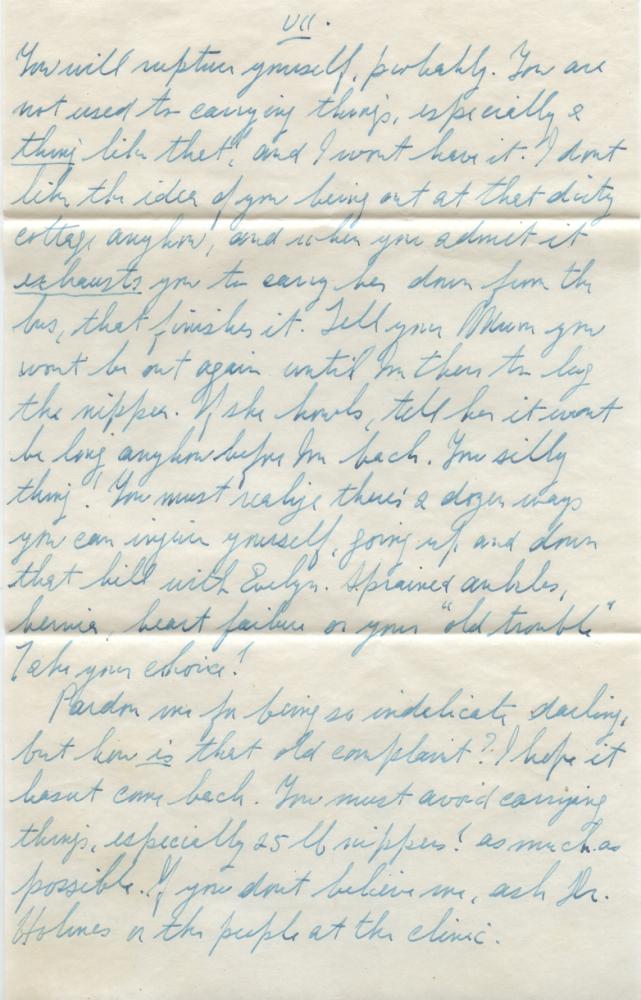 VII.
You will rupture yourself, probably. You are
not used to carrying things, especially a
thing like that!, and I wont have it. I dont
like the idea of you being out at that dirty
cottage anyhow, and when you admit it
exhausts you to carry her down from the
bus, that finishes it. Tell your Mum you
wont be out again until Im there to lug
the nipper. If she howls, tell her it wont
be long anyhow before Im back. You silly
thing! You must realize there's a dozen ways
you can injure yourself, going up and down
that hill with Evelyn. Sprained ankles,
hernia, heart failure or your "old trouble"
Take your choice!
Pardon me for being so indelicate darling,
but how is that old complaint? I hope it
hasnt come back. You must avoid carrying
things, especially 25 lb nippers! as much as
possible. If you don't believe me, ask Dr.
Holmes or the people at the clinic.